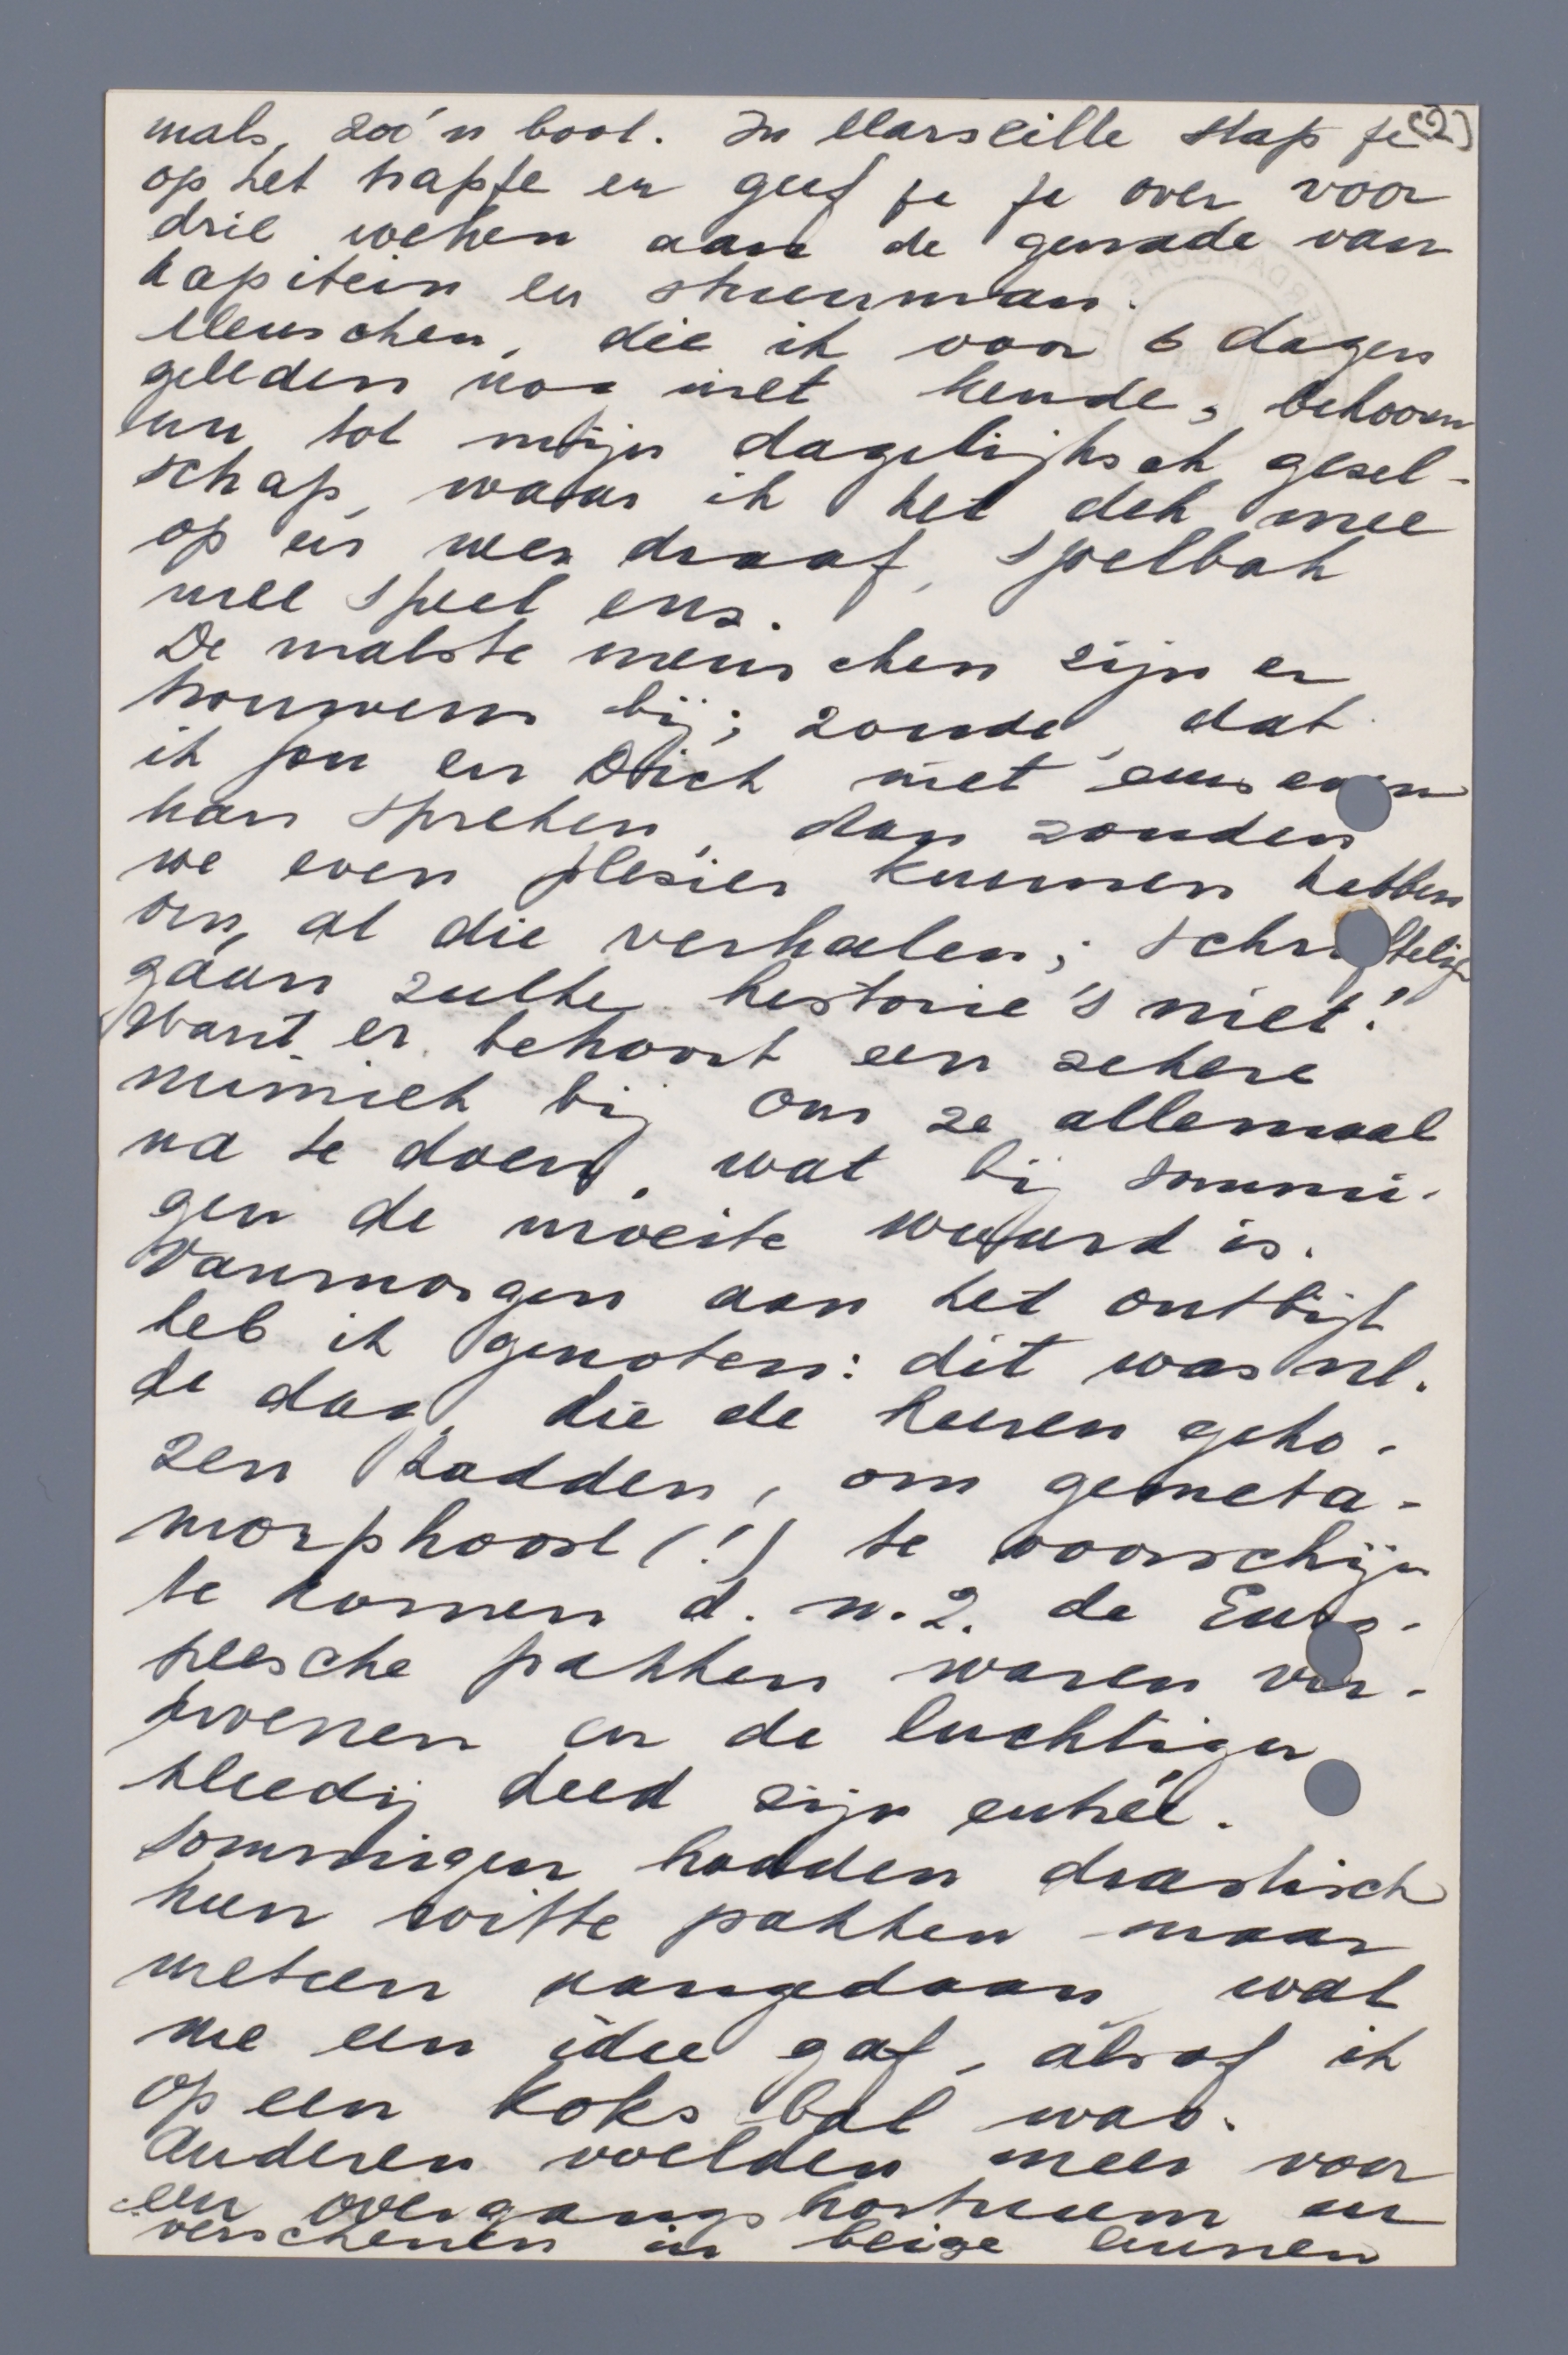 mals, zoo'n boot. In Marseille stap je (2)
op het trapje en geef je je over voor
drie weken aan de genade van
kapitein en stuurman.
Menschen, die ik voor 6 dagen
geleden nog niet kende, behooren
nu tot mijn dagelijksch gezel-
schap, waar ik het dek mee
op en neer draaf, sjoelbak
mee speel enz.
De malste menschen zijn er
trouwens bij; zonde, dat
ik jou en Dick niet eens even
kan spreken, dan zouden
we even plezier kunnen hebben
om al die verhalen; schriftelijk
gaan zulke historie's niet!
Want er behoort een zekere
mimiek bij om ze allemaal
na te doen, wat bij sommi-
gen de moeite waard is.
Vanmorgen aan het ontbijt
heb ik genoten: dit was nl.
de dag, die de heeren geko-
zen hadden, om gemeta-
morphoost (!) te voorschijn
te komen d.w.z. de Euro-
peesche pakken waren ver-
dwenen en de luchtiger
kleedij deed zijn entrée.
Sommigen hadden drastisch
hun witte pakken maar
meteen aangedaan, wat
me een idee gaf, alsof ik
op een koks bal was.
Anderen voelden meer voor
een overgangskostuum en
verschenen in beige linnen